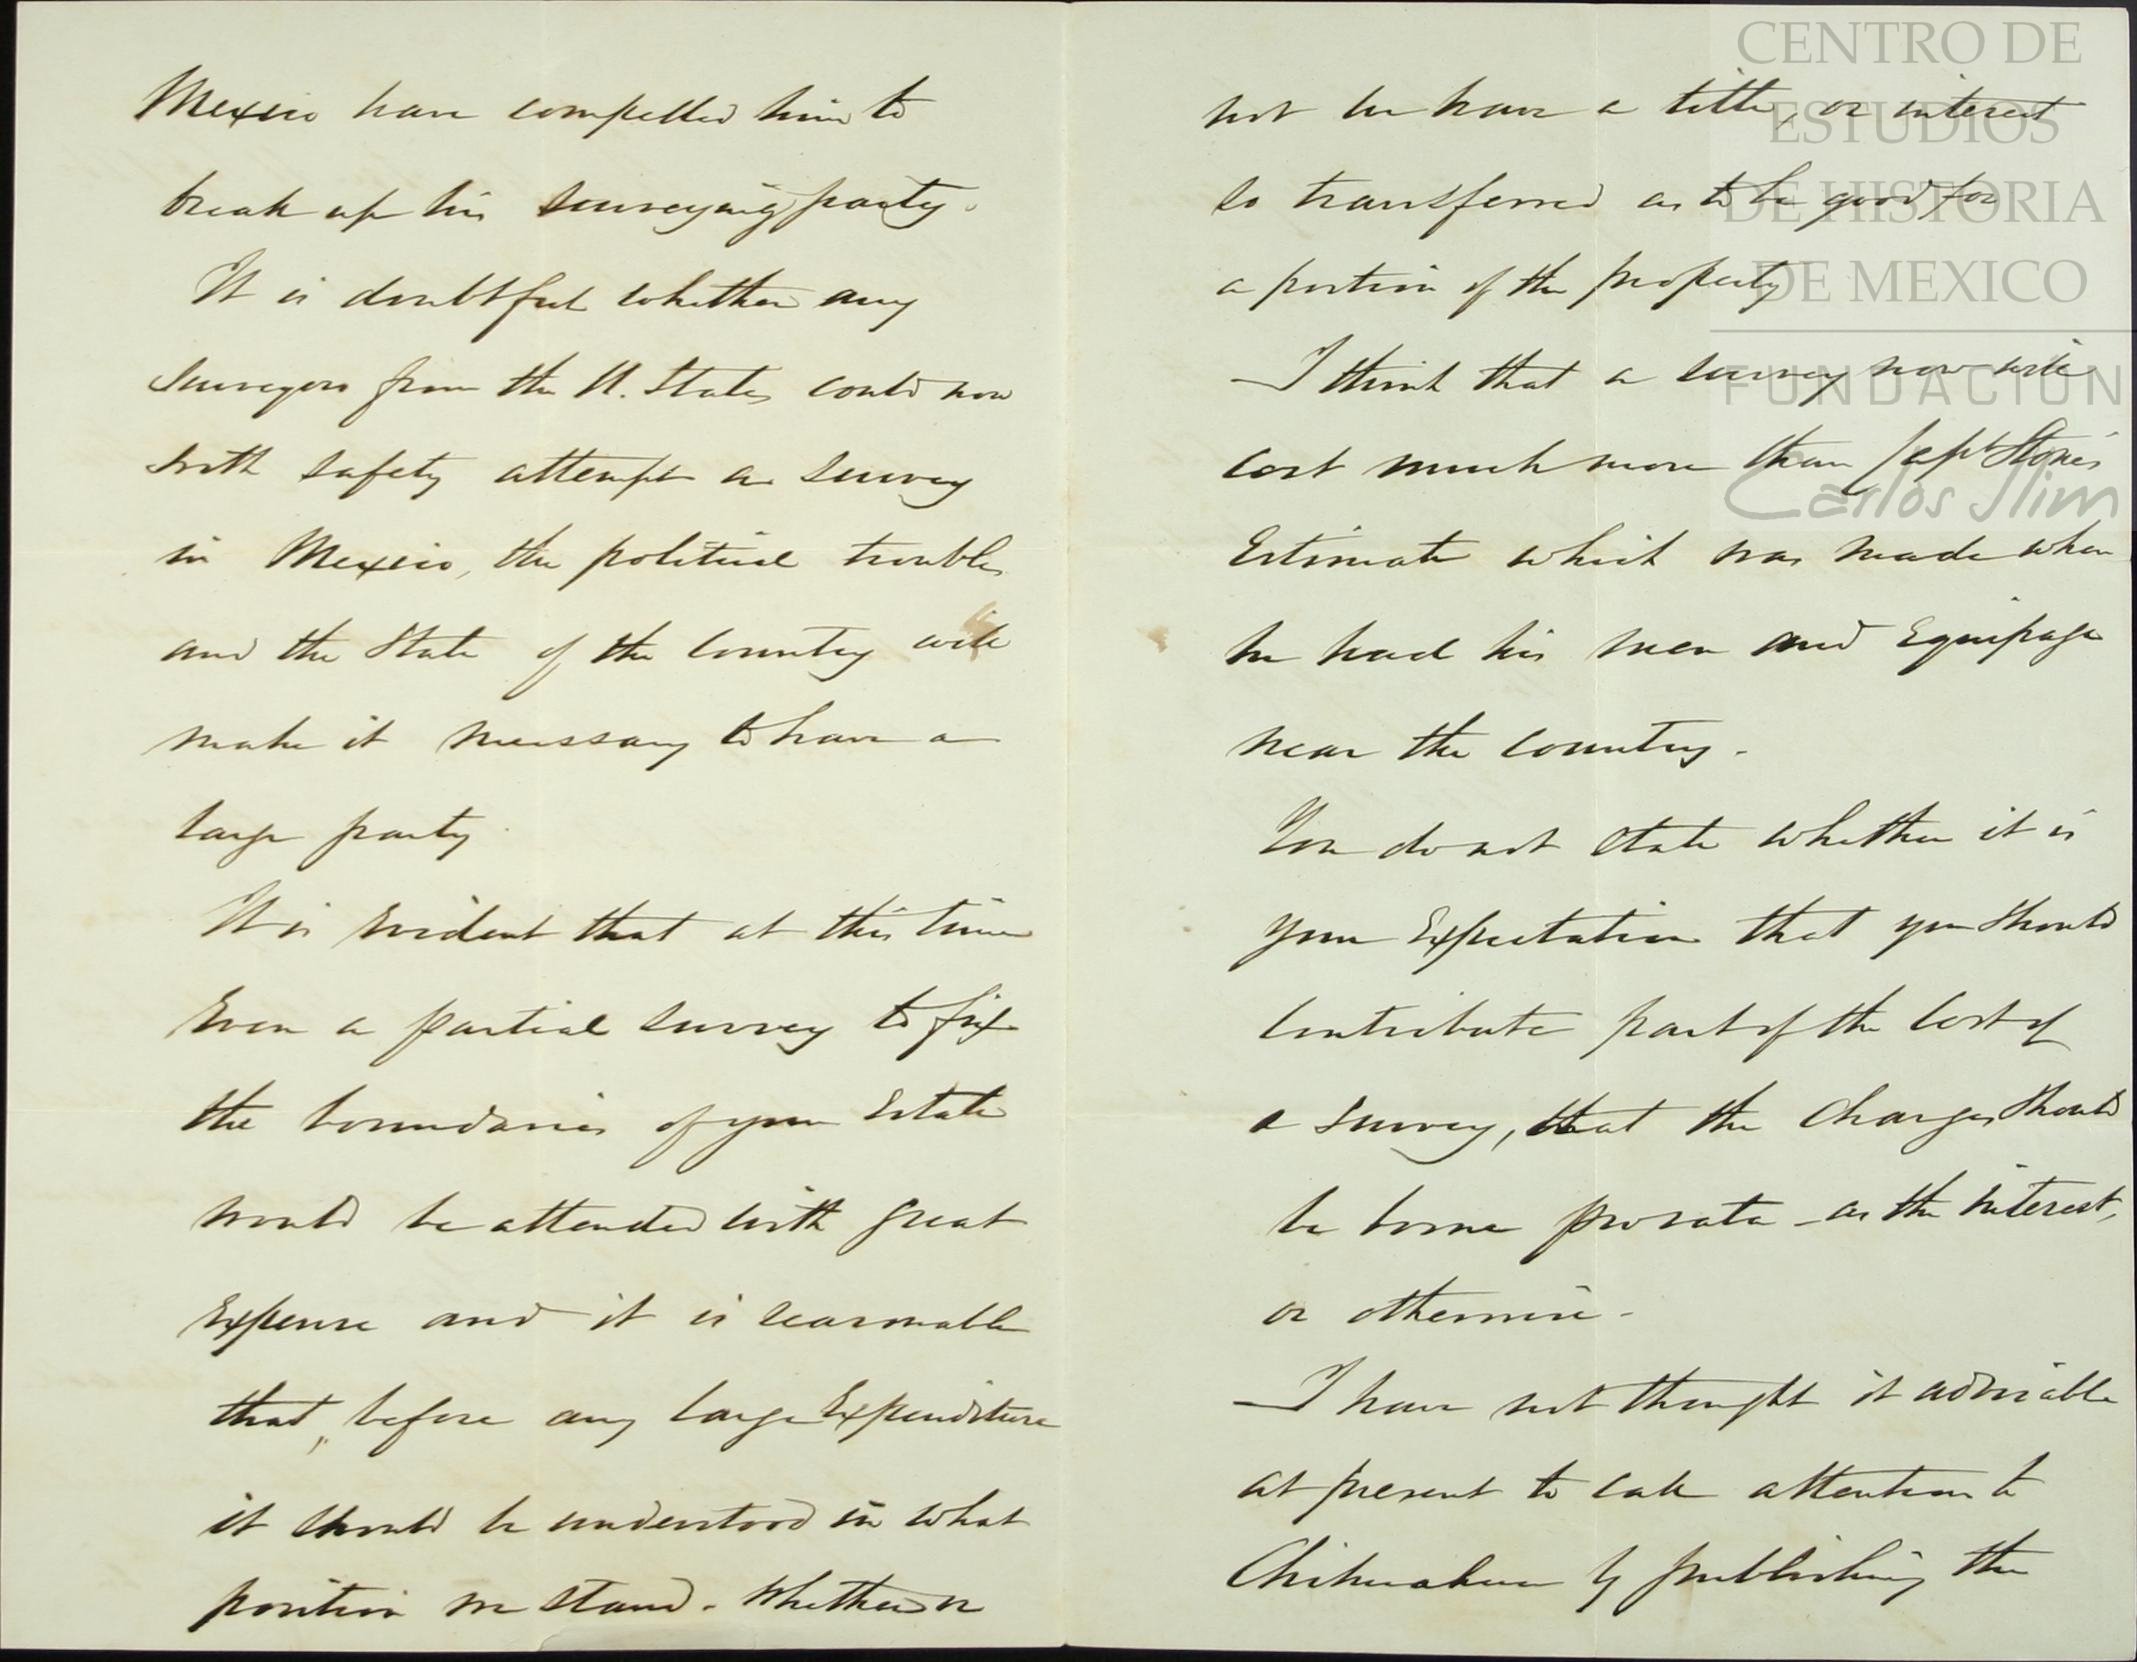 Mexico have compelled him to
break up his surveying party.
It is doubtful whether any
surveyors from the U. States could now
with safety attempt a survey
in Mexico, the political troubles
and the State of the Country will
make it necessary to have a
large party.
It is Evident that at this time
Even a partial survey to fix
the boundaries of your Estate
would be attended with great
Expense and it is reasonable
that, before any large Expenditure
it should be understood in what
position we stand. Whether or
not we have a title, or interest
so transferred as to be good for
a portion of the property
I think that a survey now will
cost much more than Capt Stone's
Estimate which was made when
he had his men and Equipage
near the country.
You do not state whether it is
your Expectation that you should
contribute part of the cost of
a survey, that the charges should
be borne pro rata as the interest,
or otherwise.
I have not thought it advisable
at present to call attention to
Chihuahua by publishing the
CENTRO DE
ESTUDIOS
DE HISTORIA
DE MEXICO
FUNDACIÓN
Carlos Slim